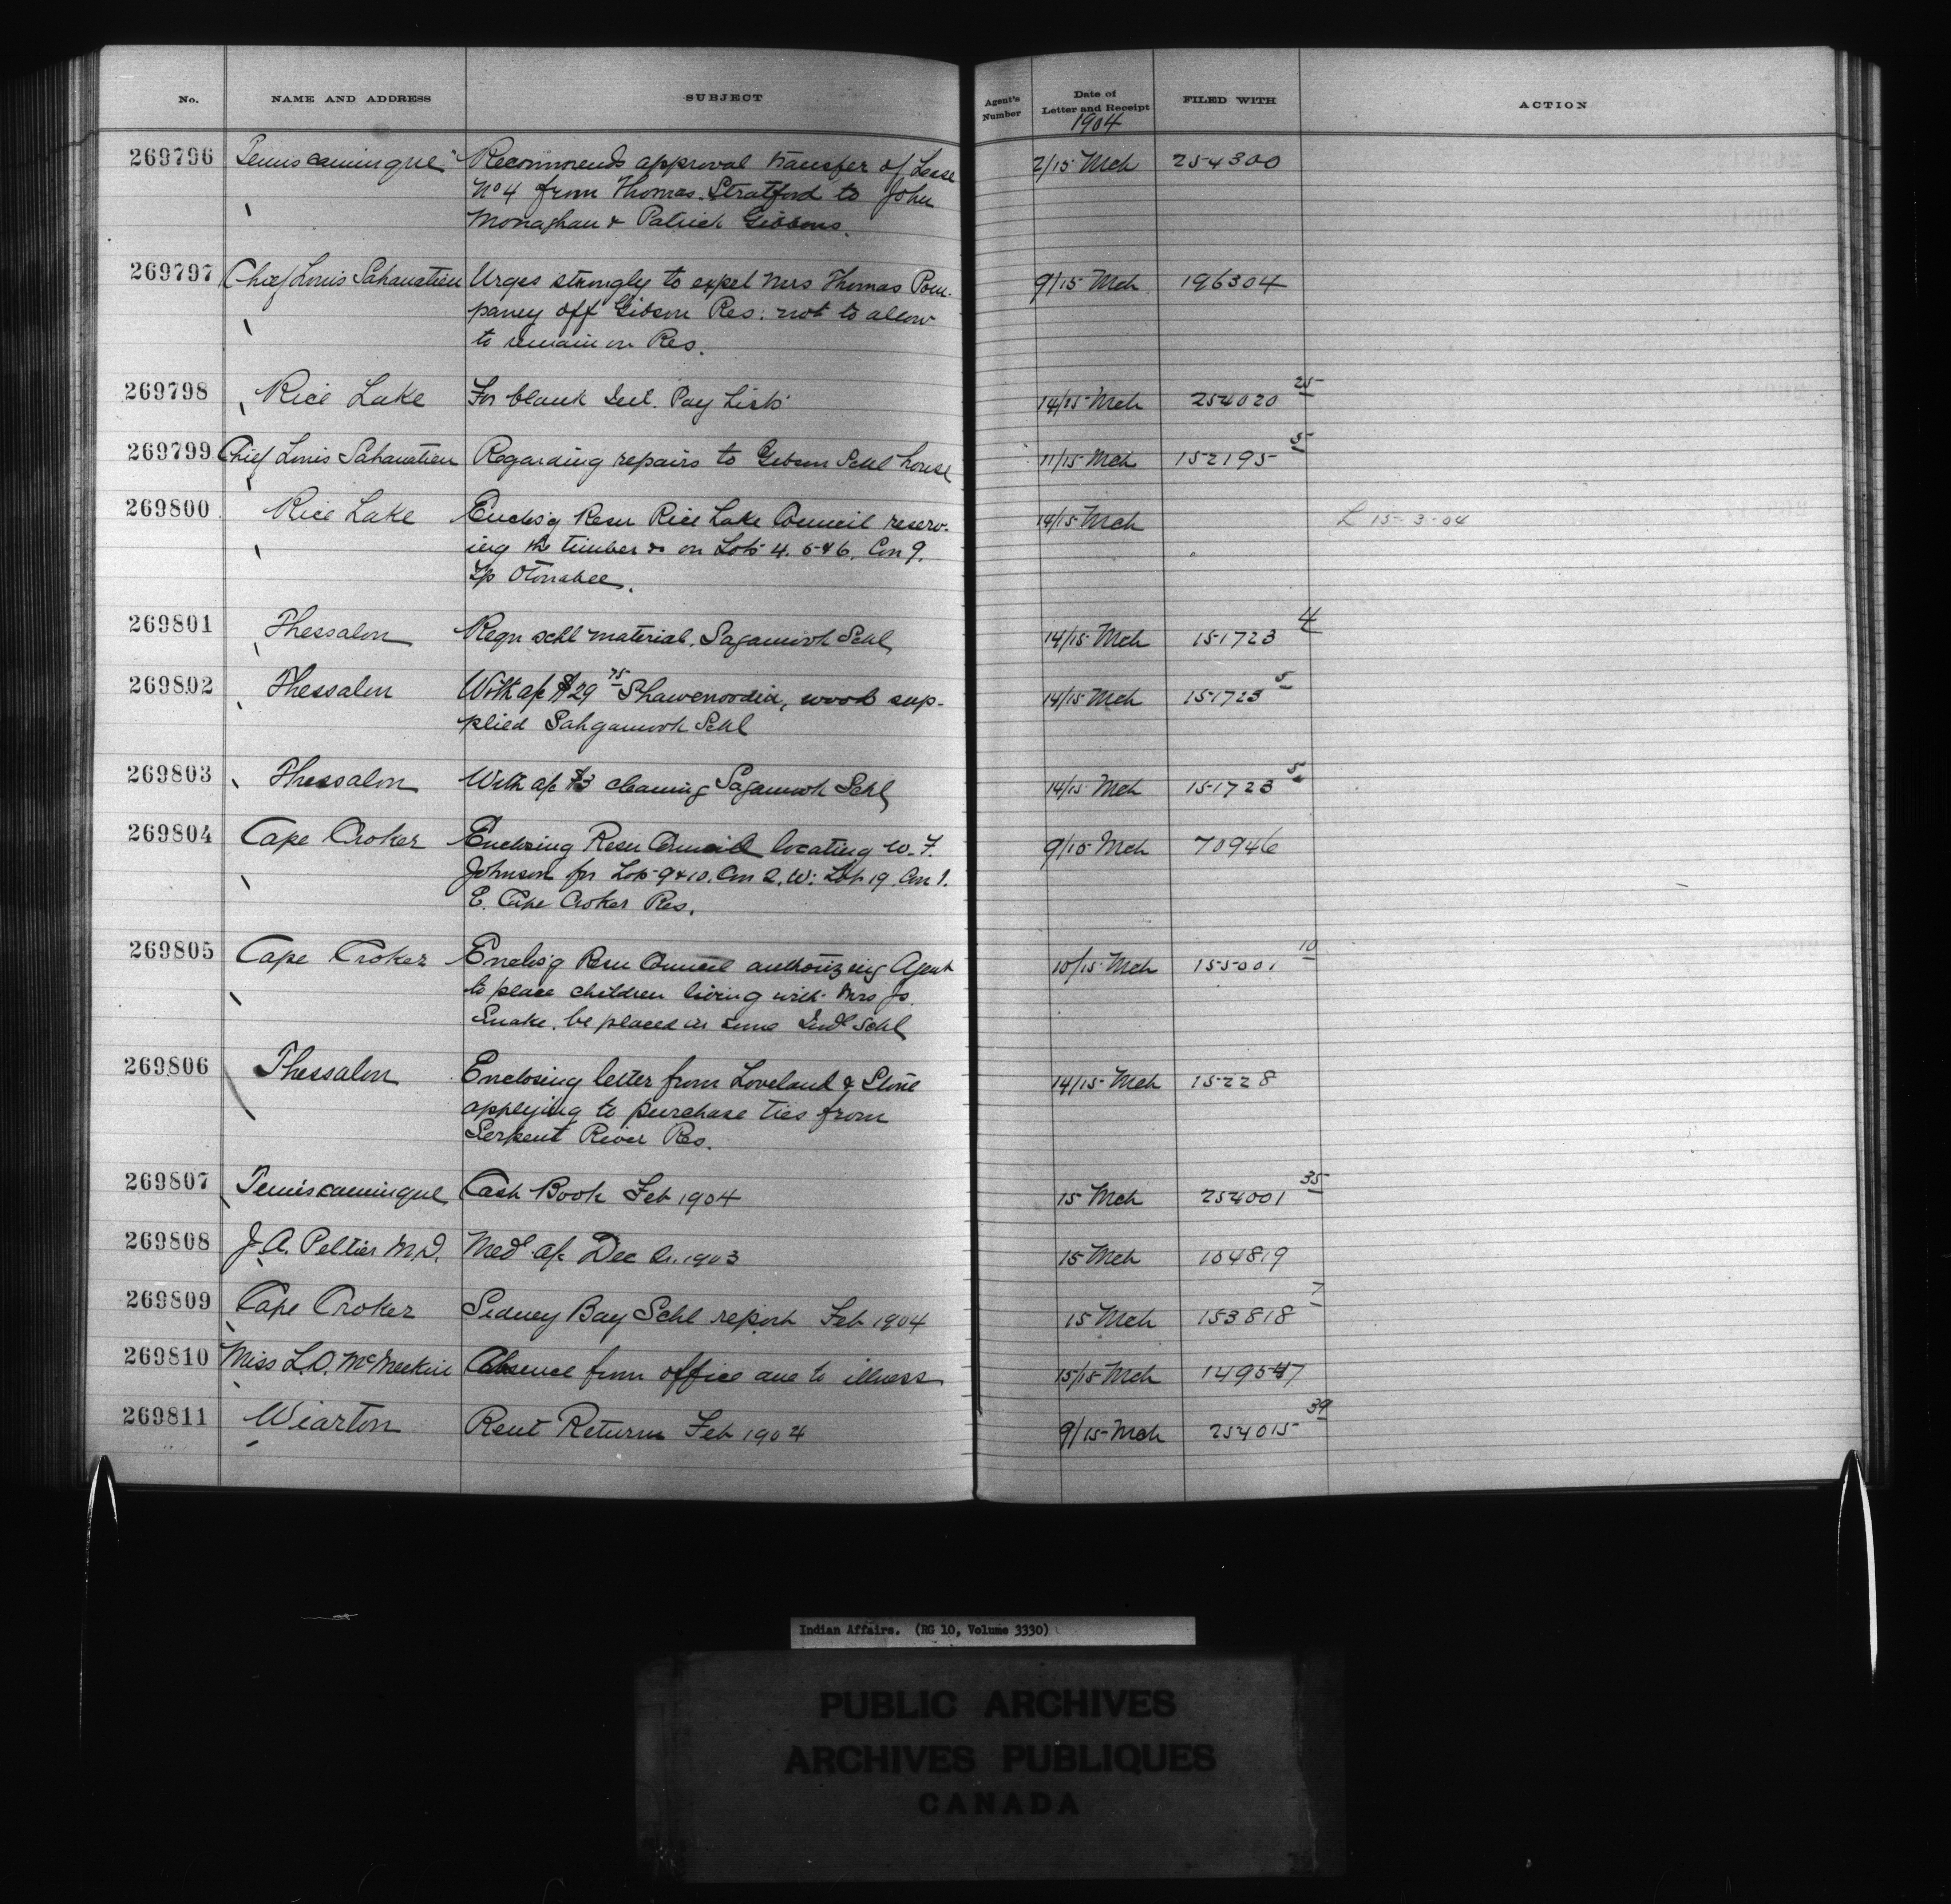 No. NAME AND ADDRESS SUBJECT Agent's Number Date of Letter and Receipt FILED WITH ACTION
1904
269796 Temiscamingue Recommends approval transfer of Lease 2/15 Mch 254300
No 4 from Thomas Stratford to John
Monaghan & Patrick Gibbons.
269797 Chief Louis Sahanatien Urges strongly to expel Mrs Thomas Pom- 9/15 Mch 196304
paney off Gibson Res. not to allow
to remain on Res.
269798 Rice Lake For blank Pay Lists 14/15 Mch 254020 25
269799 Chief Louis Sahanatien Regarding repairs to Gibson Schl house 11/15 Mch 152195 5
269800 Rice Lake Enclos'g Resn Rice Lake Council reserv- 14/15 Mch L 15-3-04
ing the timber &c on Lots 4. 5 & 6. Con 9.
Tp Otonabee.
269801 Thessalon Reqn schl material. Sagamook Schl 14/15 Mch 151723 4
269802 Thessalon With a/c $29 75 Shawenoodin, wood sup- 14/15 Mch 151723 5
plied Sahgamook Schl
269803 Thessalon With a/c $3 cleaning Sagamook Schl 14/15 Mch 151723 5
269804 Cape Croker Enclosing Resn Council locating W. F. 9/15 Mch 70946
Johnson for Lots 9 & 10. Con 2. W: Lot 19 Con 1.
E. Cape Croker Res.
269805 Cape Croker Enclos'g Resn Council authorizing Agent 10/15 Mch 155001 10
to place children living with Mrs Js.
Snake. be placed in some Indl Schl
269806 Thessalon Enclosing letter from Loveland & Stone 14/15 Mch 15228
applying to purchase ties from
Serpent River Res.
269807 Temiscamingue Cash Book Feb 1904 15 Mch 254001 35
269808 J. A. Peltier M.D. Medl a/c Dec Qr. 1903 15 Mch 104819
269809 Cape Croker Sidney Bay Schl report Feb 1904 15 Mch 153818 7
269810 Miss L.D. McMeekin Absence from office due to illness 15/15 Mch 149547
269811 Wiarton Rent Return Feb 1904 9/15 Mch 254015 39
Indian Affairs. (RG 10, Volume 3330)
PUBLIC ARCHIVES
ARCHIVES PUBLIQUES
CANADA